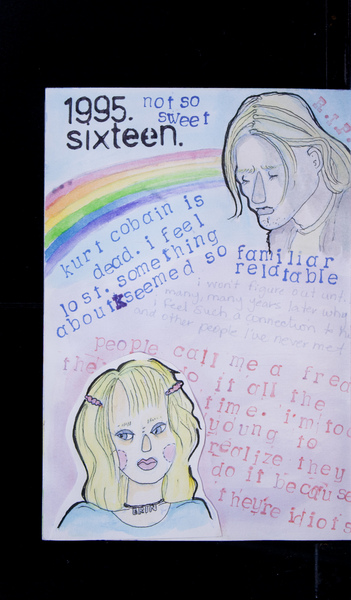 1995.
not so
sweet
sixteen.
R.I.P.
kurt cobain is
dead. i feel
lost. something
about seemed so
familiar
relatable
i won't figure out until
many, many years later why
i feel such a connection to
and other people i've never met
people call me a frea
the do it all the
time. i'm too
young to
realize they
do it because
they're idiots
ERIN